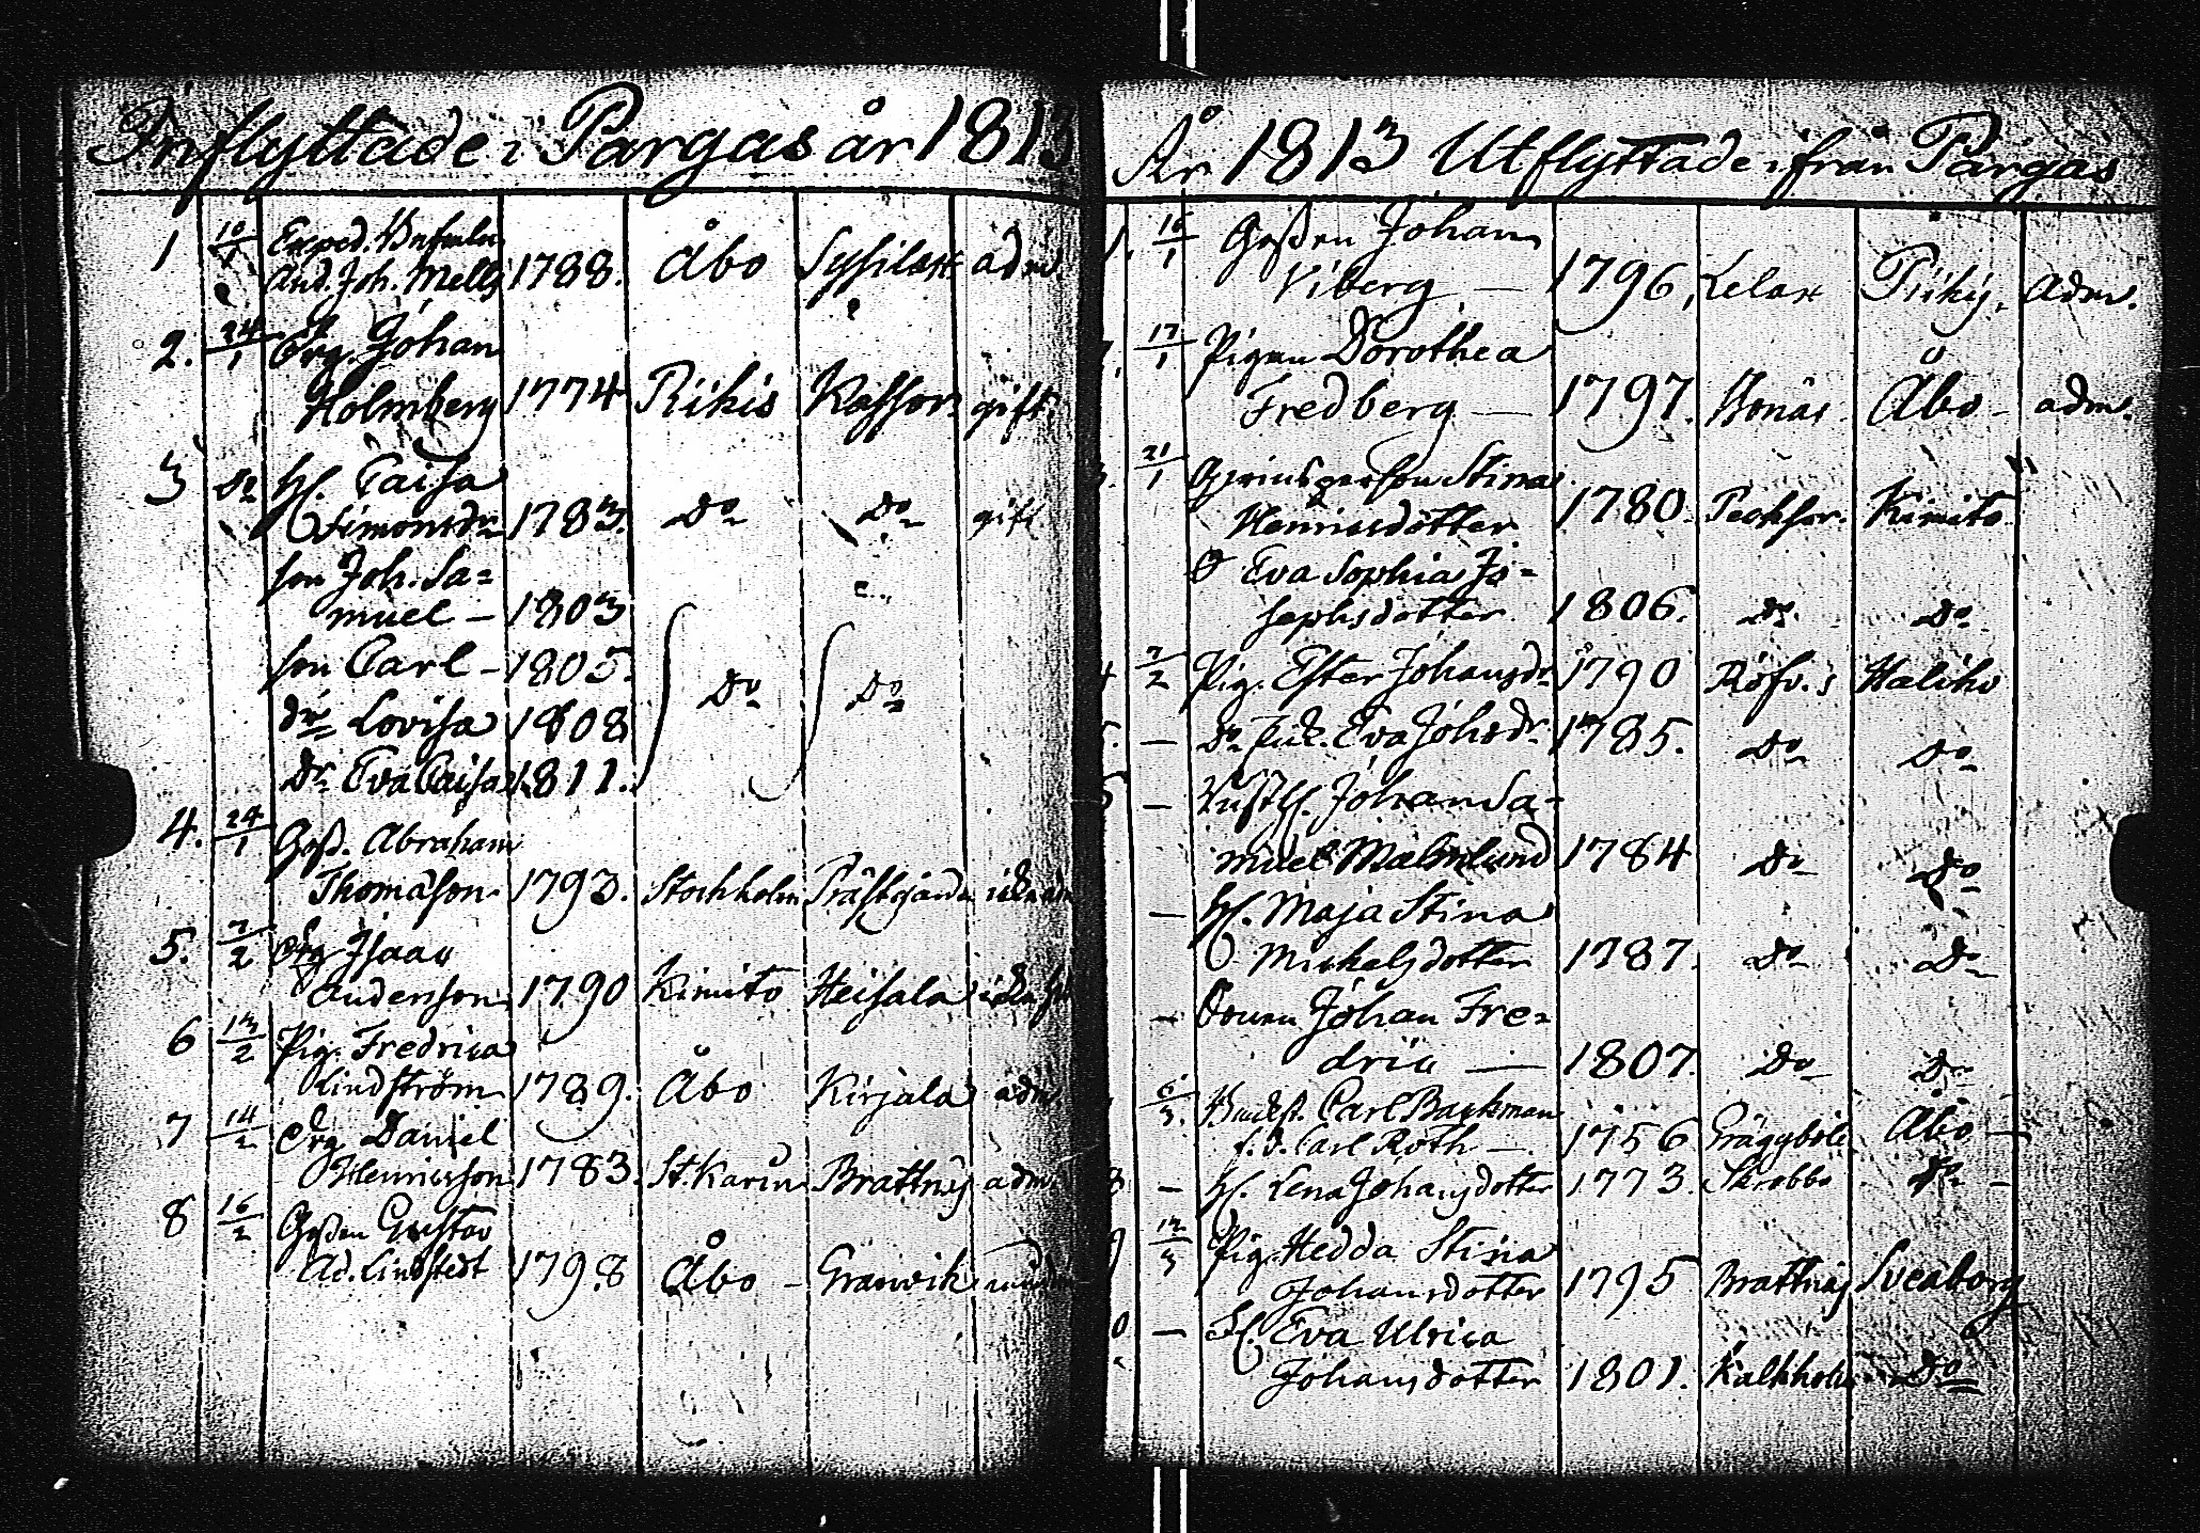 Inflyttade i Pargas år 1813
1 10/1 Exped.
And. Joh. Mells 1788. Åbo Sysilax adm
2. 24/1 Drg. Johan
Holmberg 1774 Rikis Kassor gift
3 Do H. Caisa
Simonsdr 1783. Do Do gift
son Joh. Sa=
muel – 1803
son Carl – 1805.
dr Lovisa 1808 Do Do
Dr Eva Caisa 1811.
4. 24/1 Goss. Abraham
Thomasson 1793. Stockholm Prästgården
5. 7/2 Drg Isaac
Andersson 1790 Kimito Heisala
6 13/2 Pig. Fredrica
Lindström 1789. Åbo Kirjala adm.
7 14/2 Drg Daniel
Henricsson 1783. St. Karin Brattnäs adm.
8 16/2 Gossen Gustav
Ad. Lindstedt 1798 Åbo – Granvik
År 1813 Utflyttade ifrån Pargas
1. 16/1 Gossen Johan
Viberg — 1796, Lelax Pikis, adm.
17/1 Pigan Dorothea
Fredberg — 1797. Bonäs Åbo – adm.
21/1 Stina
Henricsdotter 1780. Peckfor. Kimito
D Eva Sophia Jo=
sephsdotter 1806. do Do
7/2 Pig. Ester Johansdr 1790 Röfv. s Haliko
5. — Do Eva Johsdr 1785. Do Do
— Johan Sa=
muel Malmlund 1784 Do Do
— H. Maja Stina
Michelsdotter 1787. Do Do
— Sonen Johan Fre=
dric — 1807. Do Do
6/3. Carl Backman
f. d. Carl Roth —. 1756 Gräggböle Åbo —
8 — H. Lena Johansdotter 1773. Skrobbo do –
Pig. Hedda Stina
Johansdotter 1795 Brattnäs Sveaborg
0 — Eva Ulrica
Johansdotter 1801. Kalkholm Do